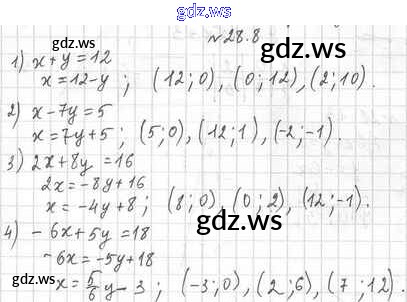 gdz.ws
№28.8
1) x + y = 12
x = 12 - y ; (12; 0), (0; 12), (2; 10).
2) x - 7y = 5
x = 7y + 5 ; (5; 0), (12; 1), (-2; -1).
3) 2x + 8y = 16
2x = -8y + 16
x = -4y + 8 ; (8; 0), (0; 2), (12; -1).
4) - 6x + 5y = 18
-6x = -5y + 18
x = 5/6 y - 3 ; (-3; 0), (2; 6), (7; 12).
gdz.ws
gdz.ws
gdz.ws
gdz.ws
gdz.ws